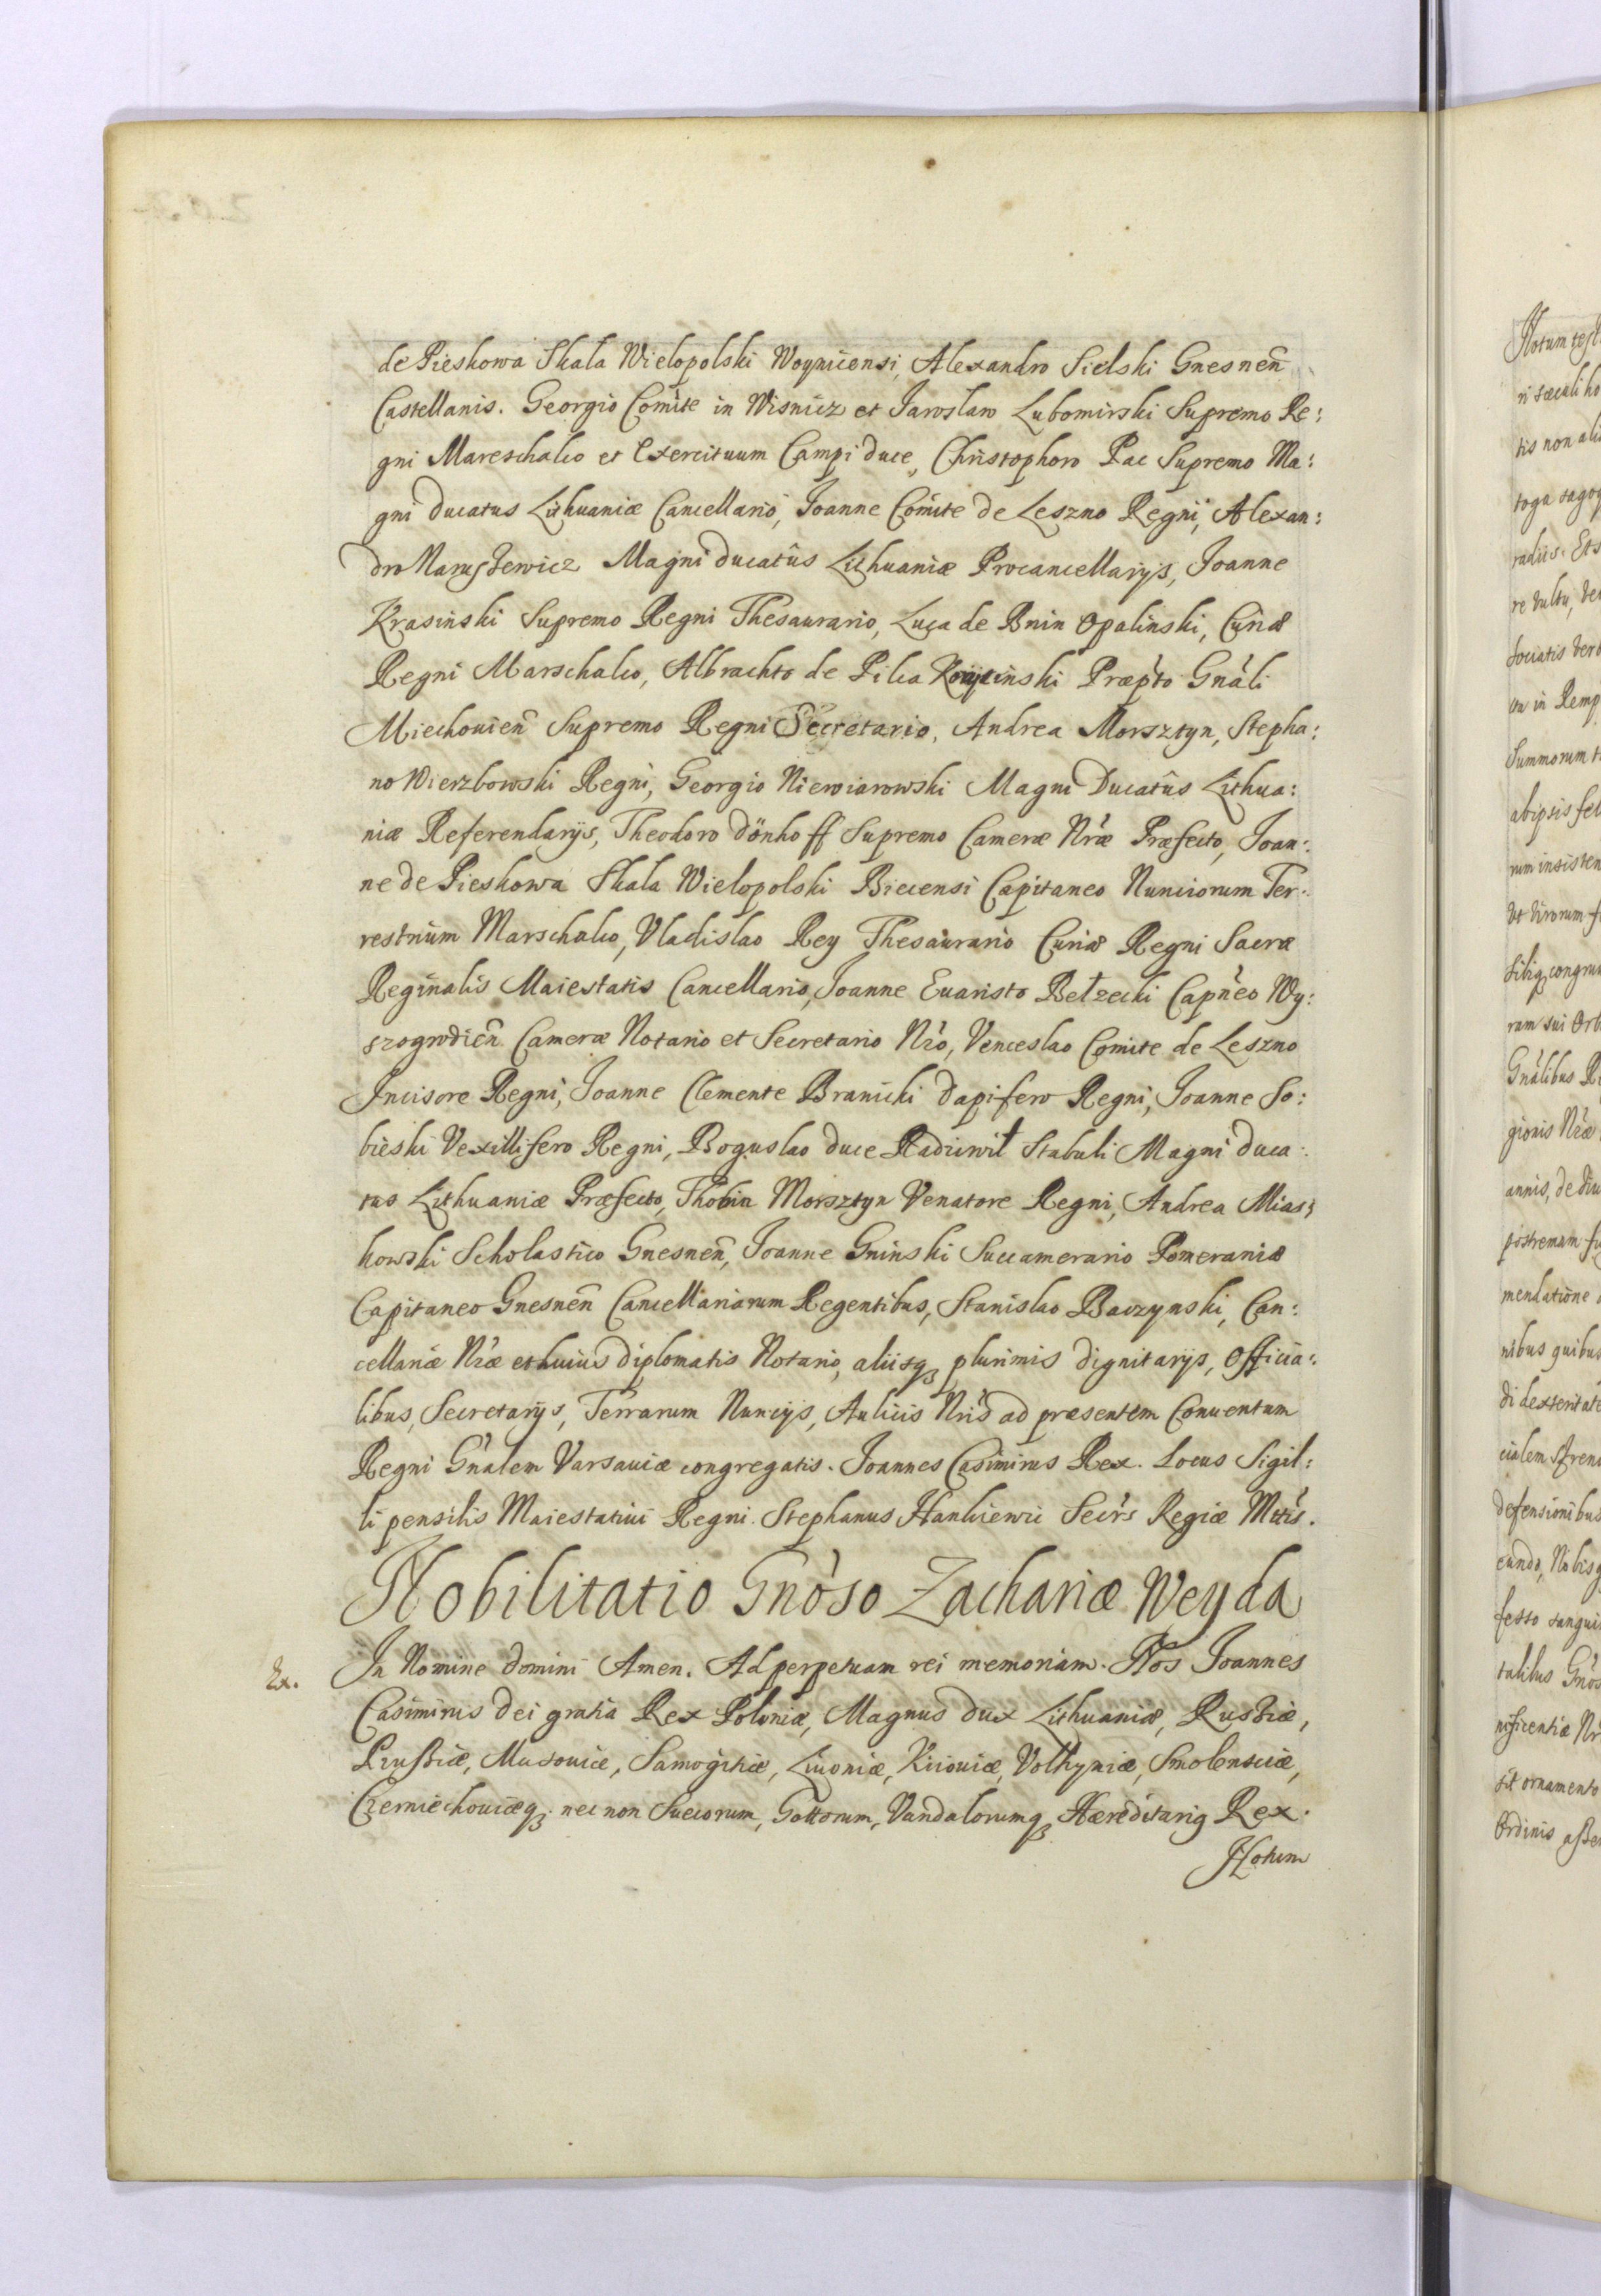 de Pieskowa Skala Wielopolski Woynicensi, Alexandro Sielski Gnesnen̄
Castellanis. Georgio Comite in Wisnicz et Jaroslaw Lubomirski Supremo Re:
gni Mareschalco et Exercituum Campi duce, Christophoro Pac Supremo Ma:
gni Ducatus Lithuaniæ Cancellario, Joanne Comite de Leszno Regni, Alexan:
dro Naruszewicz Magni Ducatûs Lithuaniæ Procancellarijs, Joanne
Krasinski Supremo Regni Thesaurario, Luca de Bnin Opalinski, Curiæ
Regni Marschalco, Albrachto de Pilca Koryciński Præp̀to Gnàli
Miechouien̄ Supremo Regni Secretario, Andrea Morsztyn, Stepha:
no Wierzbowski Regni, Georgio Niewiarowski Magni Ducatûs Lithua:
niæ Referendarijs, Theodoro Dönhoff Supremo Cameræ Nræ Præfecto, Joan:
ne de Pieskowa Skala Wielopolski Biecensi Capitaneo Nunciorum Ter:
restrium Marschalco, Vladislao Rey Thesaurario Curiæ Regni Sacræ
Reginalis Maiestatis Cancellario, Joanne Euaristo Bełzecki Capnèo Wy:
szogrodien̄ Cameræ Notario et Secretario Nrò, Venceslao Comite de Leszno
Incisore Regni, Joanne Clemente Branicki Dapifero Regni, Joanne So:
bieski Vexillifero Regni, Boguslao Duce Radziwił Stabuli Magni Duca:
tus Lithuaniæ Præfecto, Thobia Morsztyn Venatore Regni, Andrea Mias:
kowski Scholastico Gnesnen̄, Joanne Gninski Succamerario Pomeraniæ
Capitaneo Gnesnen̄ Cancellariarum Regentibus, Stanislao Baczynski, Can:
cellariæ Nræ et huius diplomatis Notario, aliisq; plurimis dignitarijs, Officia:
libus, Secretarijs, Terrarum Nuncijs, Aulicis Nris ad præsentem Conuentum
Regni Gnàlem Varsauiæ congregatis. Joannes Casimirus Rex. Locus Sigil:
li pensilis Maiestatiui Regni. Stephanus Hankiewic Secrs Regiæ Mttis.
Nobilitatio Gnòso Zachariæ Weyda
Ex. In Nomine Domini Amen. Ad perpetuam rei memoriam. Nos Joannes
Casimirus Dei gratia Rex Poloniæ, Magnus Dux Lithuaniæ, Russiæ,
Prussiæ, Masouiæ, Samogitiæ, Liuoniæ, Kiiouiæ, Volhyniæ, Smolensciæ,
Czerniechouiæq; nec non Suecorum, Gottorum, Vandalorumq; Hæreditarius Rex.
Notum